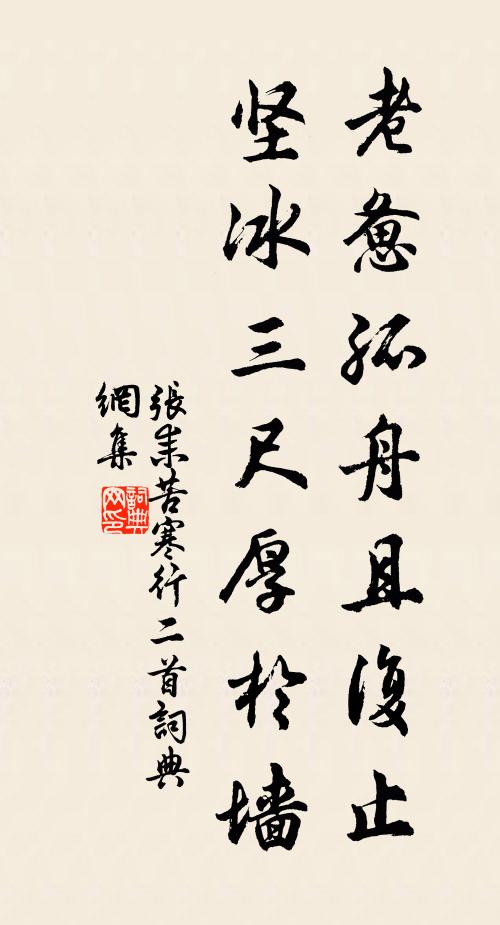 老惫孤舟且復止
坚冰三尺厚於墙
張耒苦寒行二首詞典
網集
詞典
网印